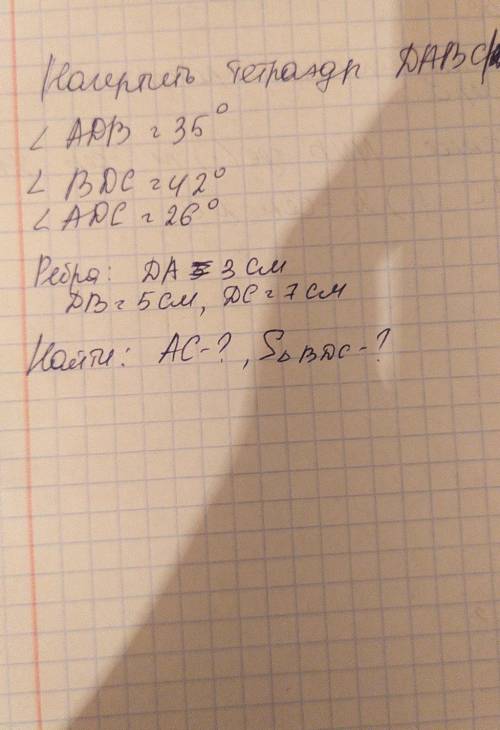 Начертить тетраэдр DABC
∠ ADB = 35°
∠ BDC = 42°
∠ ADC = 26°
Ребра: DA = 3 см
DB = 5 см, DC = 7 см
Найти: AC - ?, S△BDC - ?